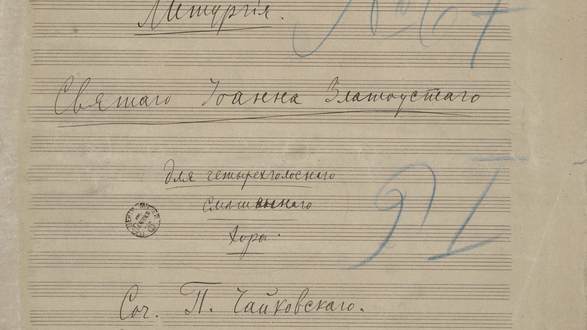 Литургія.
Святаго Іоанна Златоустаго
для четырехголоснаго
смѣшаннаго
хора.
Соч. П. Чайковскаго.